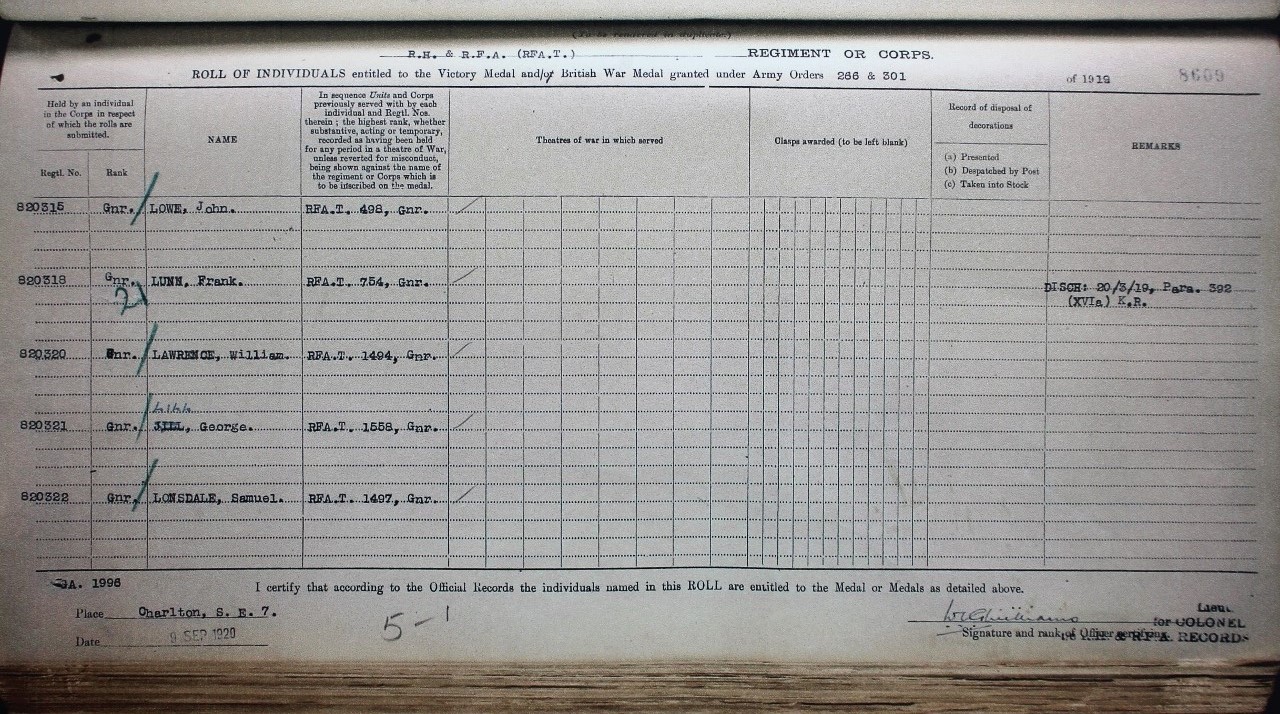 (To be rendered in duplicate)
R.H. & R.F.A. (RFA.T.) REGIMENT OR CORPS.
ROLL OF INDIVIDUALS entitled to the Victory Medal and/or British War Medal granted under Army Orders 266 & 301 of 1919 8609
Held by an individual
in the Corps in respect
of which the rolls are
submitted.
Regtl. No.
Rank
NAME
In sequence Units and Corps
previously served with by each
individual and Regtl. Nos.
therein ; the highest rank, whether
substantive, acting or temporary,
recorded as having been held
for any period in a theatre of War,
unless reverted for misconduct,
being shown against the name of
the regiment or Corps which is
to be inscribed on the medal.
Theatres of war in which served
Clasps awarded (to be left blank)
Record of disposal of
decorations
(a) Presented
(b) Despatched by Post
(c) Taken into Stock
REMARKS
820315 Gnr. LOWE, John. RFA.T. 498, Gnr.
820318 Gnr. LUNN, Frank. RFA.T. 754, Gnr. DISCH: 20/3/19, Para. 392
(XVIa) K.R.
21
820320 Gnr. LAWRENCE, William. RFA.T. 1494, Gnr.
820321 Gnr. JILL, George. RFA.T. 1558, Gnr.
820322 Gnr. LONSDALE, Samuel. RFA.T. 1497, Gnr.
GA. 1996
I certify that according to the Official Records the individuals named in this ROLL are entitled to the Medal or Medals as detailed above.
Place Charlton, S. E. 7.
Date 9 SEP 1920
5-1
Lieut.
for COLONEL
Signature and rank of Officer certifying
R.H. & R.F.A. RECORDS